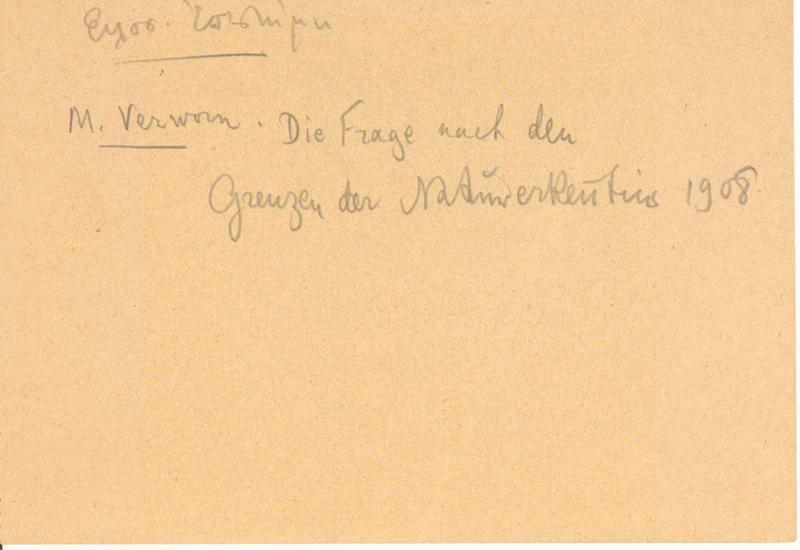 Ἐπιστήμη
M. Verworn. Die Frage nach den
Grenzen der Naturerkenntnis 1908